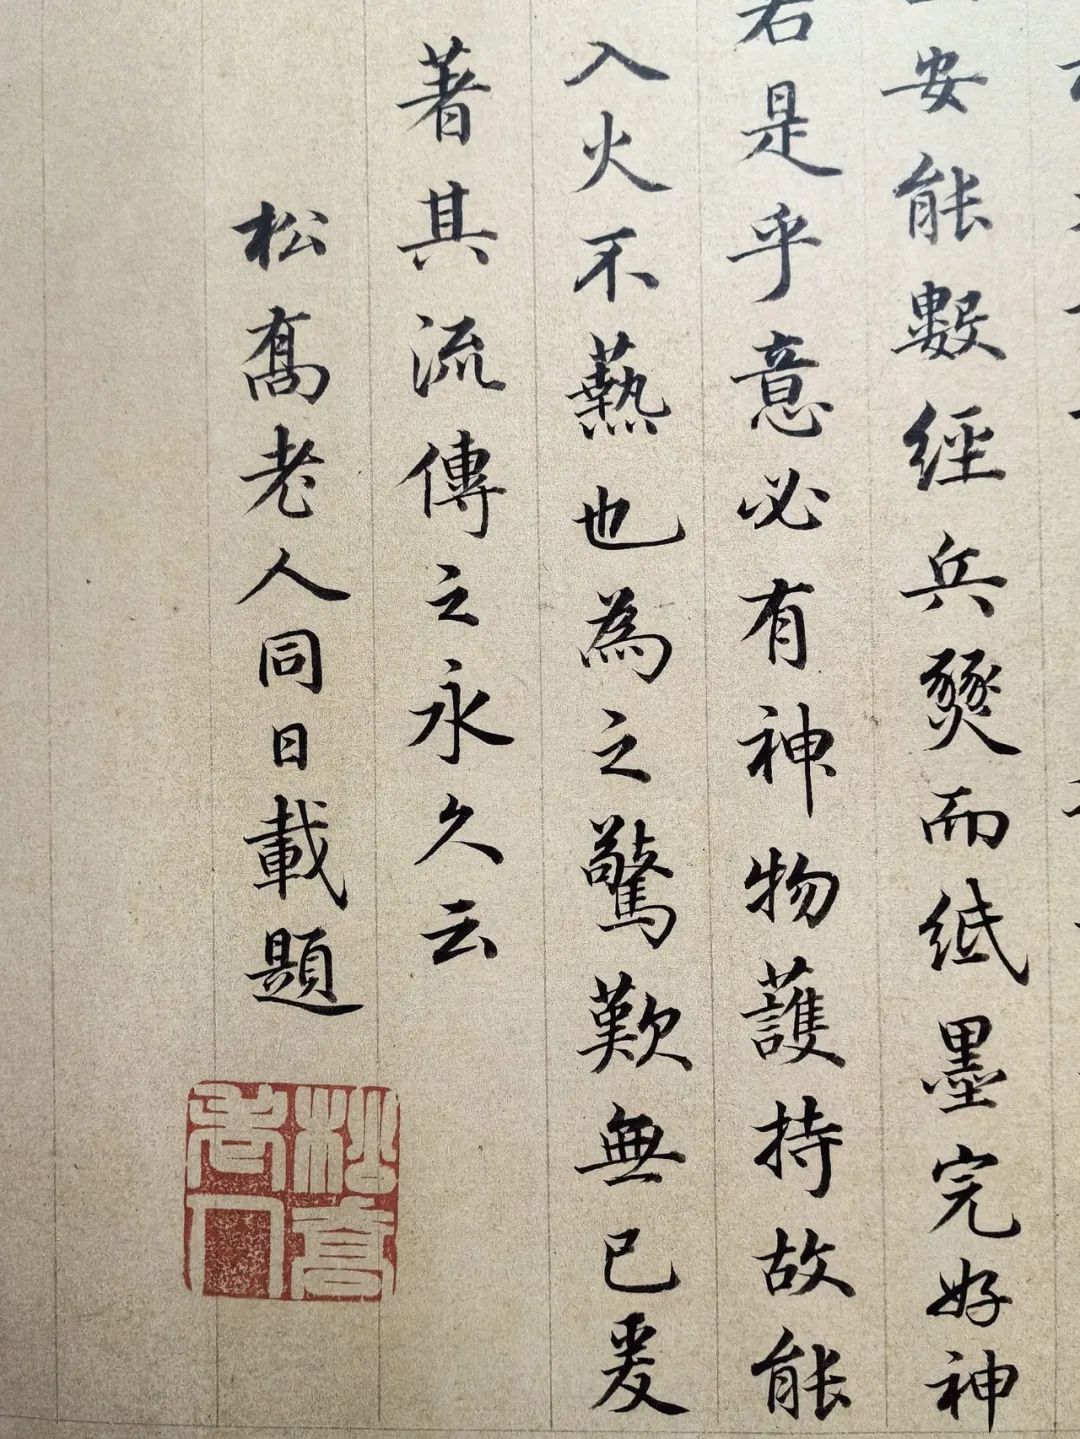 安能數經兵燹而紙墨完好神
若是乎意必有神物護持故能
入火不爇也為之驚歎無已爰
著其流傳之永久云
松喬老人同日載題
松喬老人